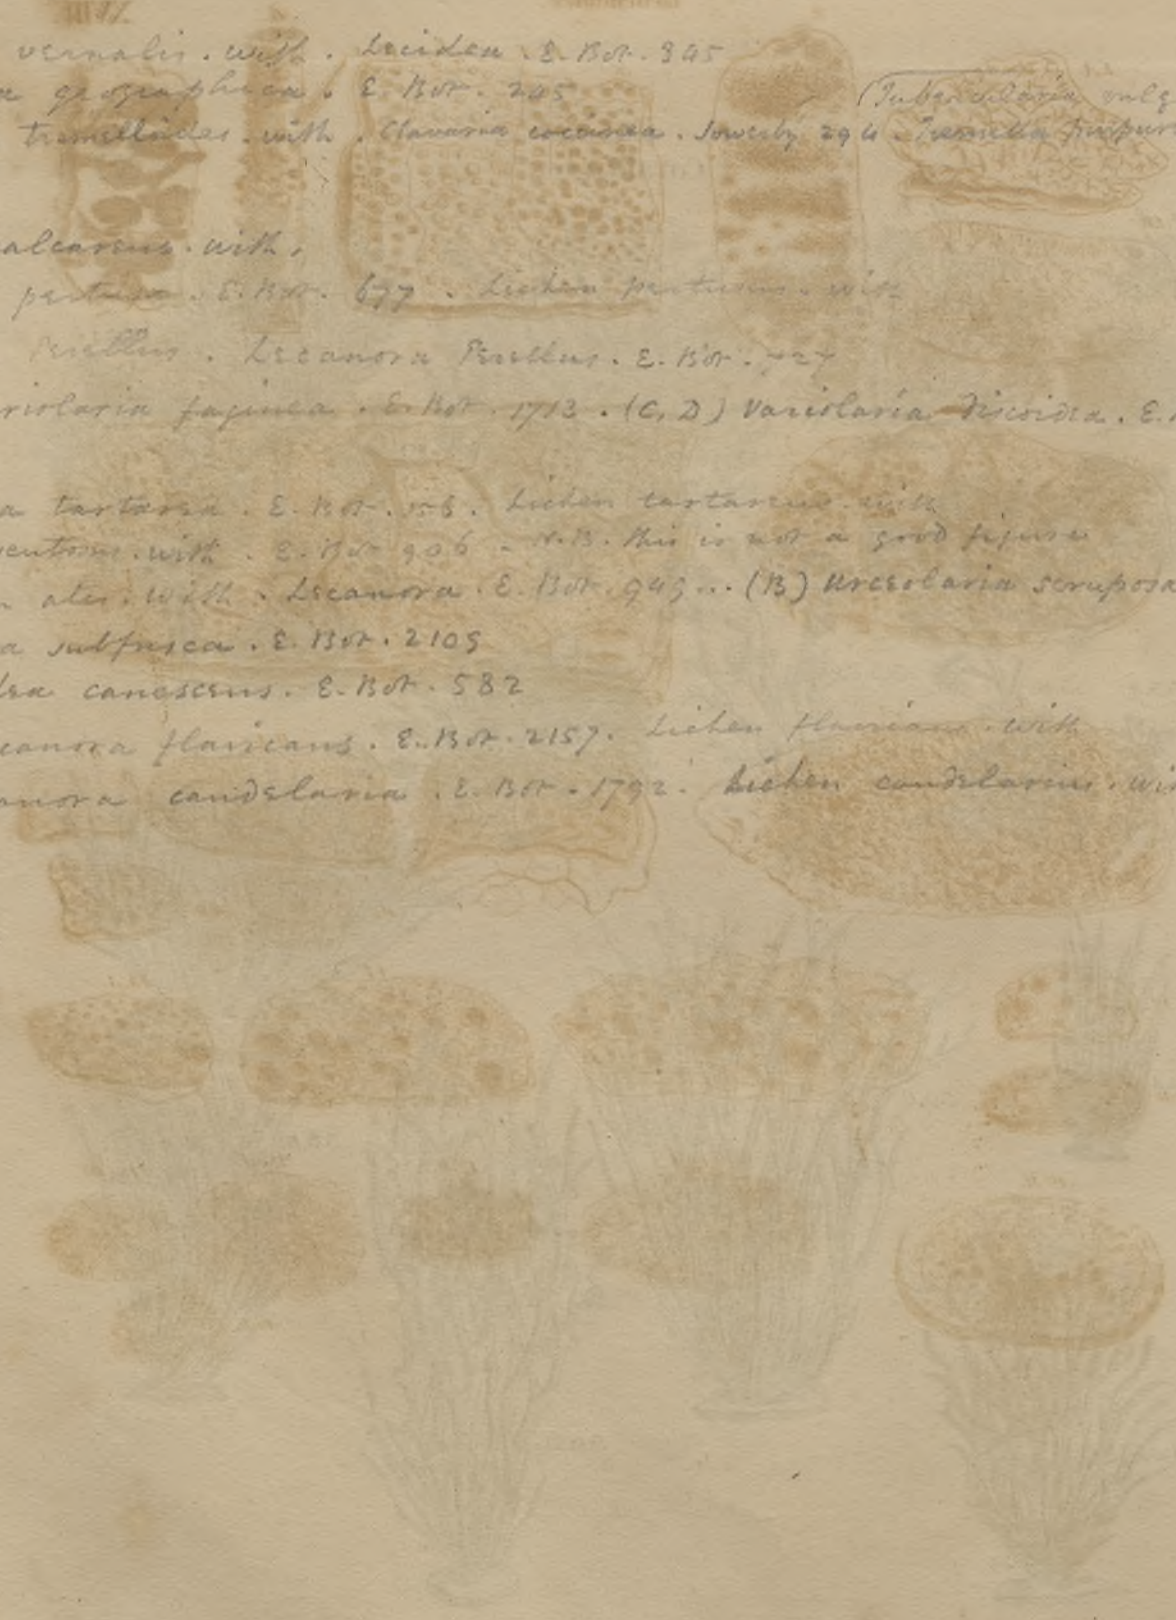 vernalis . with . Lecidea . E. Bot . 845
a geographica . E. Bot . 245
(Tubercularia vulg
tremelloides . with . Clavaria coccinea . Sowerby 294 . Tremella purpur
alcareus . with .
pertusa . E. Bot . 677 . Lichen pertusus . with
Perellus . Lecanora Perellus . E. Bot . 727
riolaria faginea . E. Bot . 1713 . (C, D) Variolaria discoidea . E.
a tartarea . E. Bot . 156 . Lichen tartareus . with
. with . E. Bot 906 - N.B. this is not a good figure
ater . with . Lecanora . E. Bot . 949 ... (B) Urceolaria scruposa
a subfusca . E. Bot . 2109
dea canescens . E. Bot . 582
canora flavicans . E. Bot . 2157 . Lichen flavicans . with
anora candelaria . E. Bot . 1792 . Lichen candelarius . wi